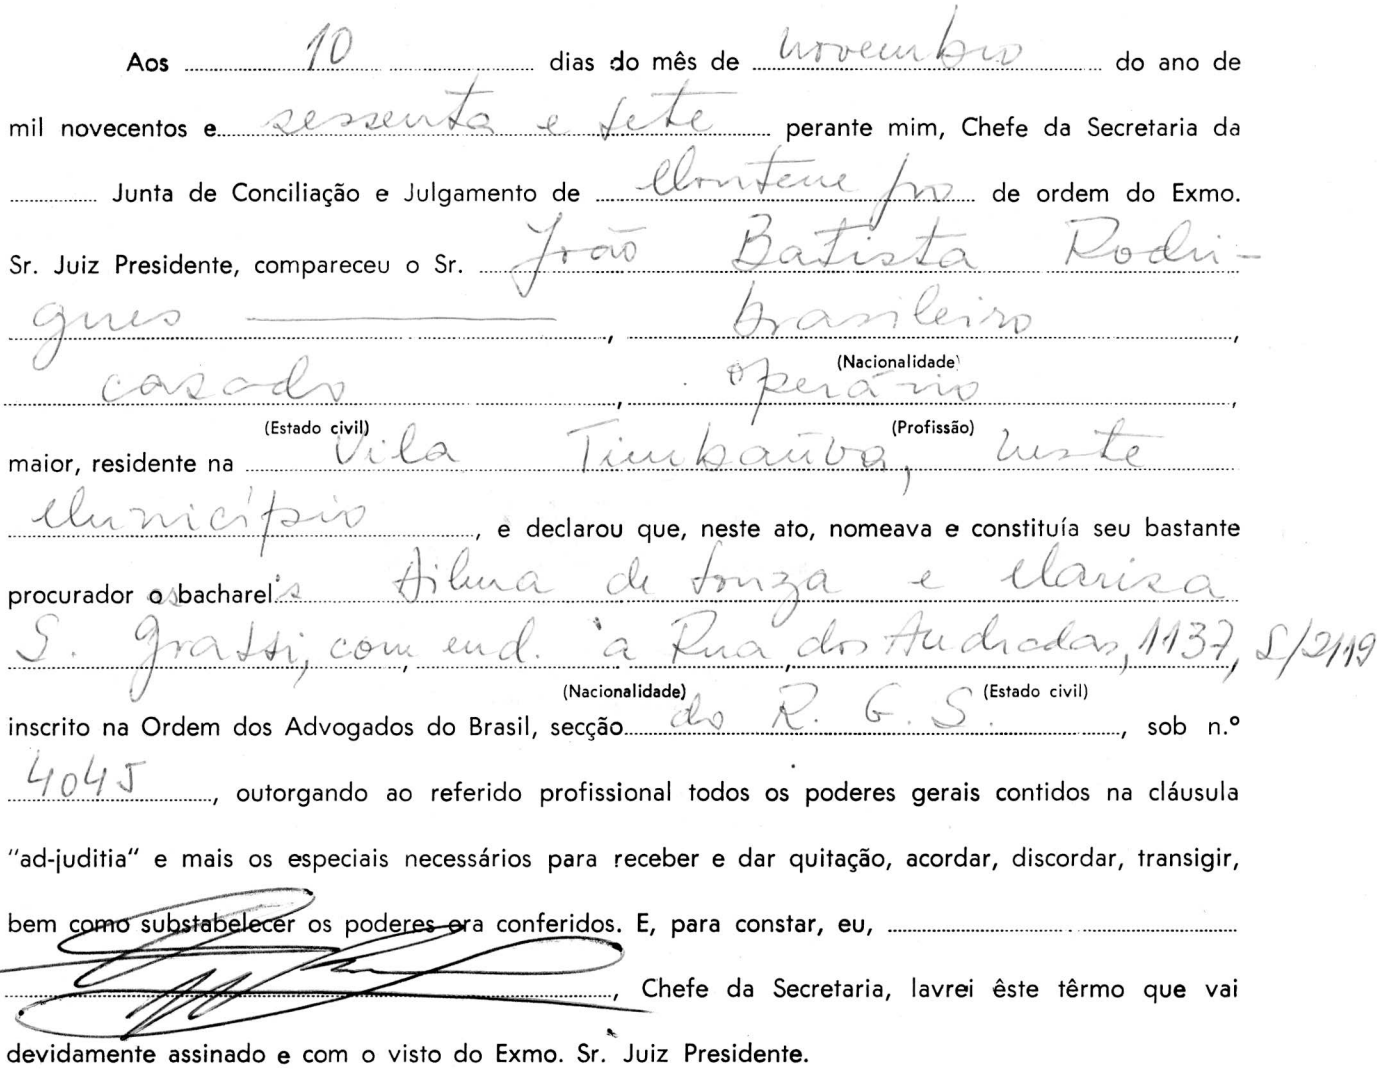 Aos 10 dias do mês de novembro do ano de
mil novecentos e sessenta e sete perante mim, Chefe da Secretaria da
Junta de Conciliação e Julgamento de Montenegro de ordem do Exmo.
Sr. Juiz Presidente, compareceu o Sr. João Batista Rodri-
gues, brasileiro,
(Nacionalidade)
casado, operário,
(Estado civil) (Profissão)
maior, residente na Vila Timbaúva, neste
Município, e declarou que, neste ato, nomeava e constituía seu bastante
procurador os bacharel's Dilma de Souza e Mariza
S. Grassi, com end. à Rua dos Andradas, 1137, S/2119
(Nacionalidade) (Estado civil)
inscrito na Ordem dos Advogados do Brasil, secção do R. G. S., sob n.º
4045, outorgando ao referido profissional todos os poderes gerais contidos na cláusula
"ad-juditia" e mais os especiais necessários para receber e dar quitação, acordar, discordar, transigir,
bem como substabelecer os poderes ora conferidos. E, para constar, eu,
, Chefe da Secretaria, lavrei êste têrmo que vai
devidamente assinado e com o visto do Exmo. Sr. Juiz Presidente.